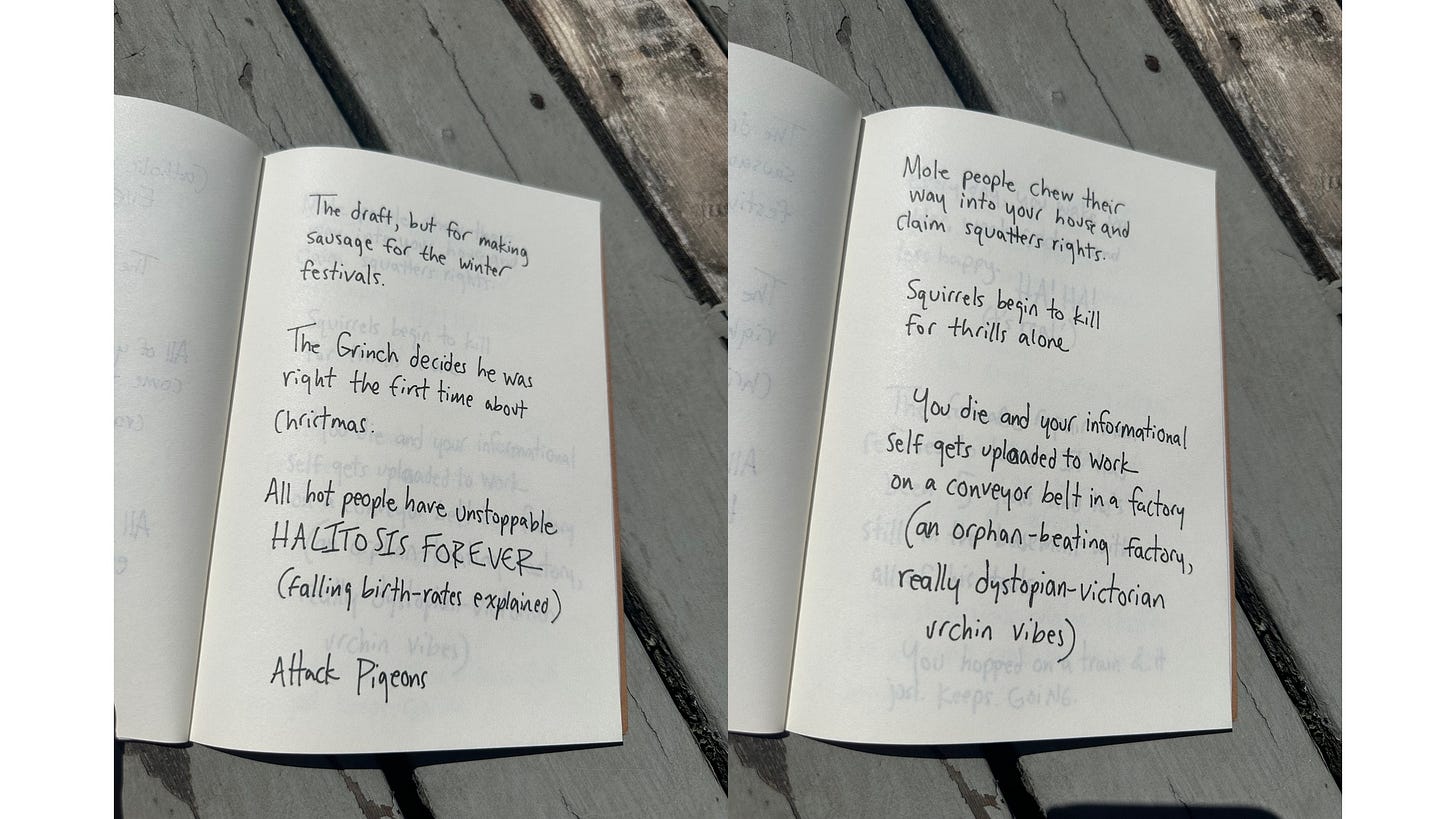 The draft, but for making
sausage for the winter
festivals.
The Grinch decides he was
right the first time about
Chrictmas.
All hot people have unstoppable
HALITOSIS FOREVER
(falling birth-rates explained)
Attack Pigeons
Mole people chew their
way into your house and
claim squatters rights.
Squirrels begin to kill
for thrills alone
You die and your informational
self gets uploaded to work
on a conveyor belt in a factory
(an orphan-beating factory,
really dystopian-victorian
urchin vibes)
You hopped on a train & it
just keeps GOING.